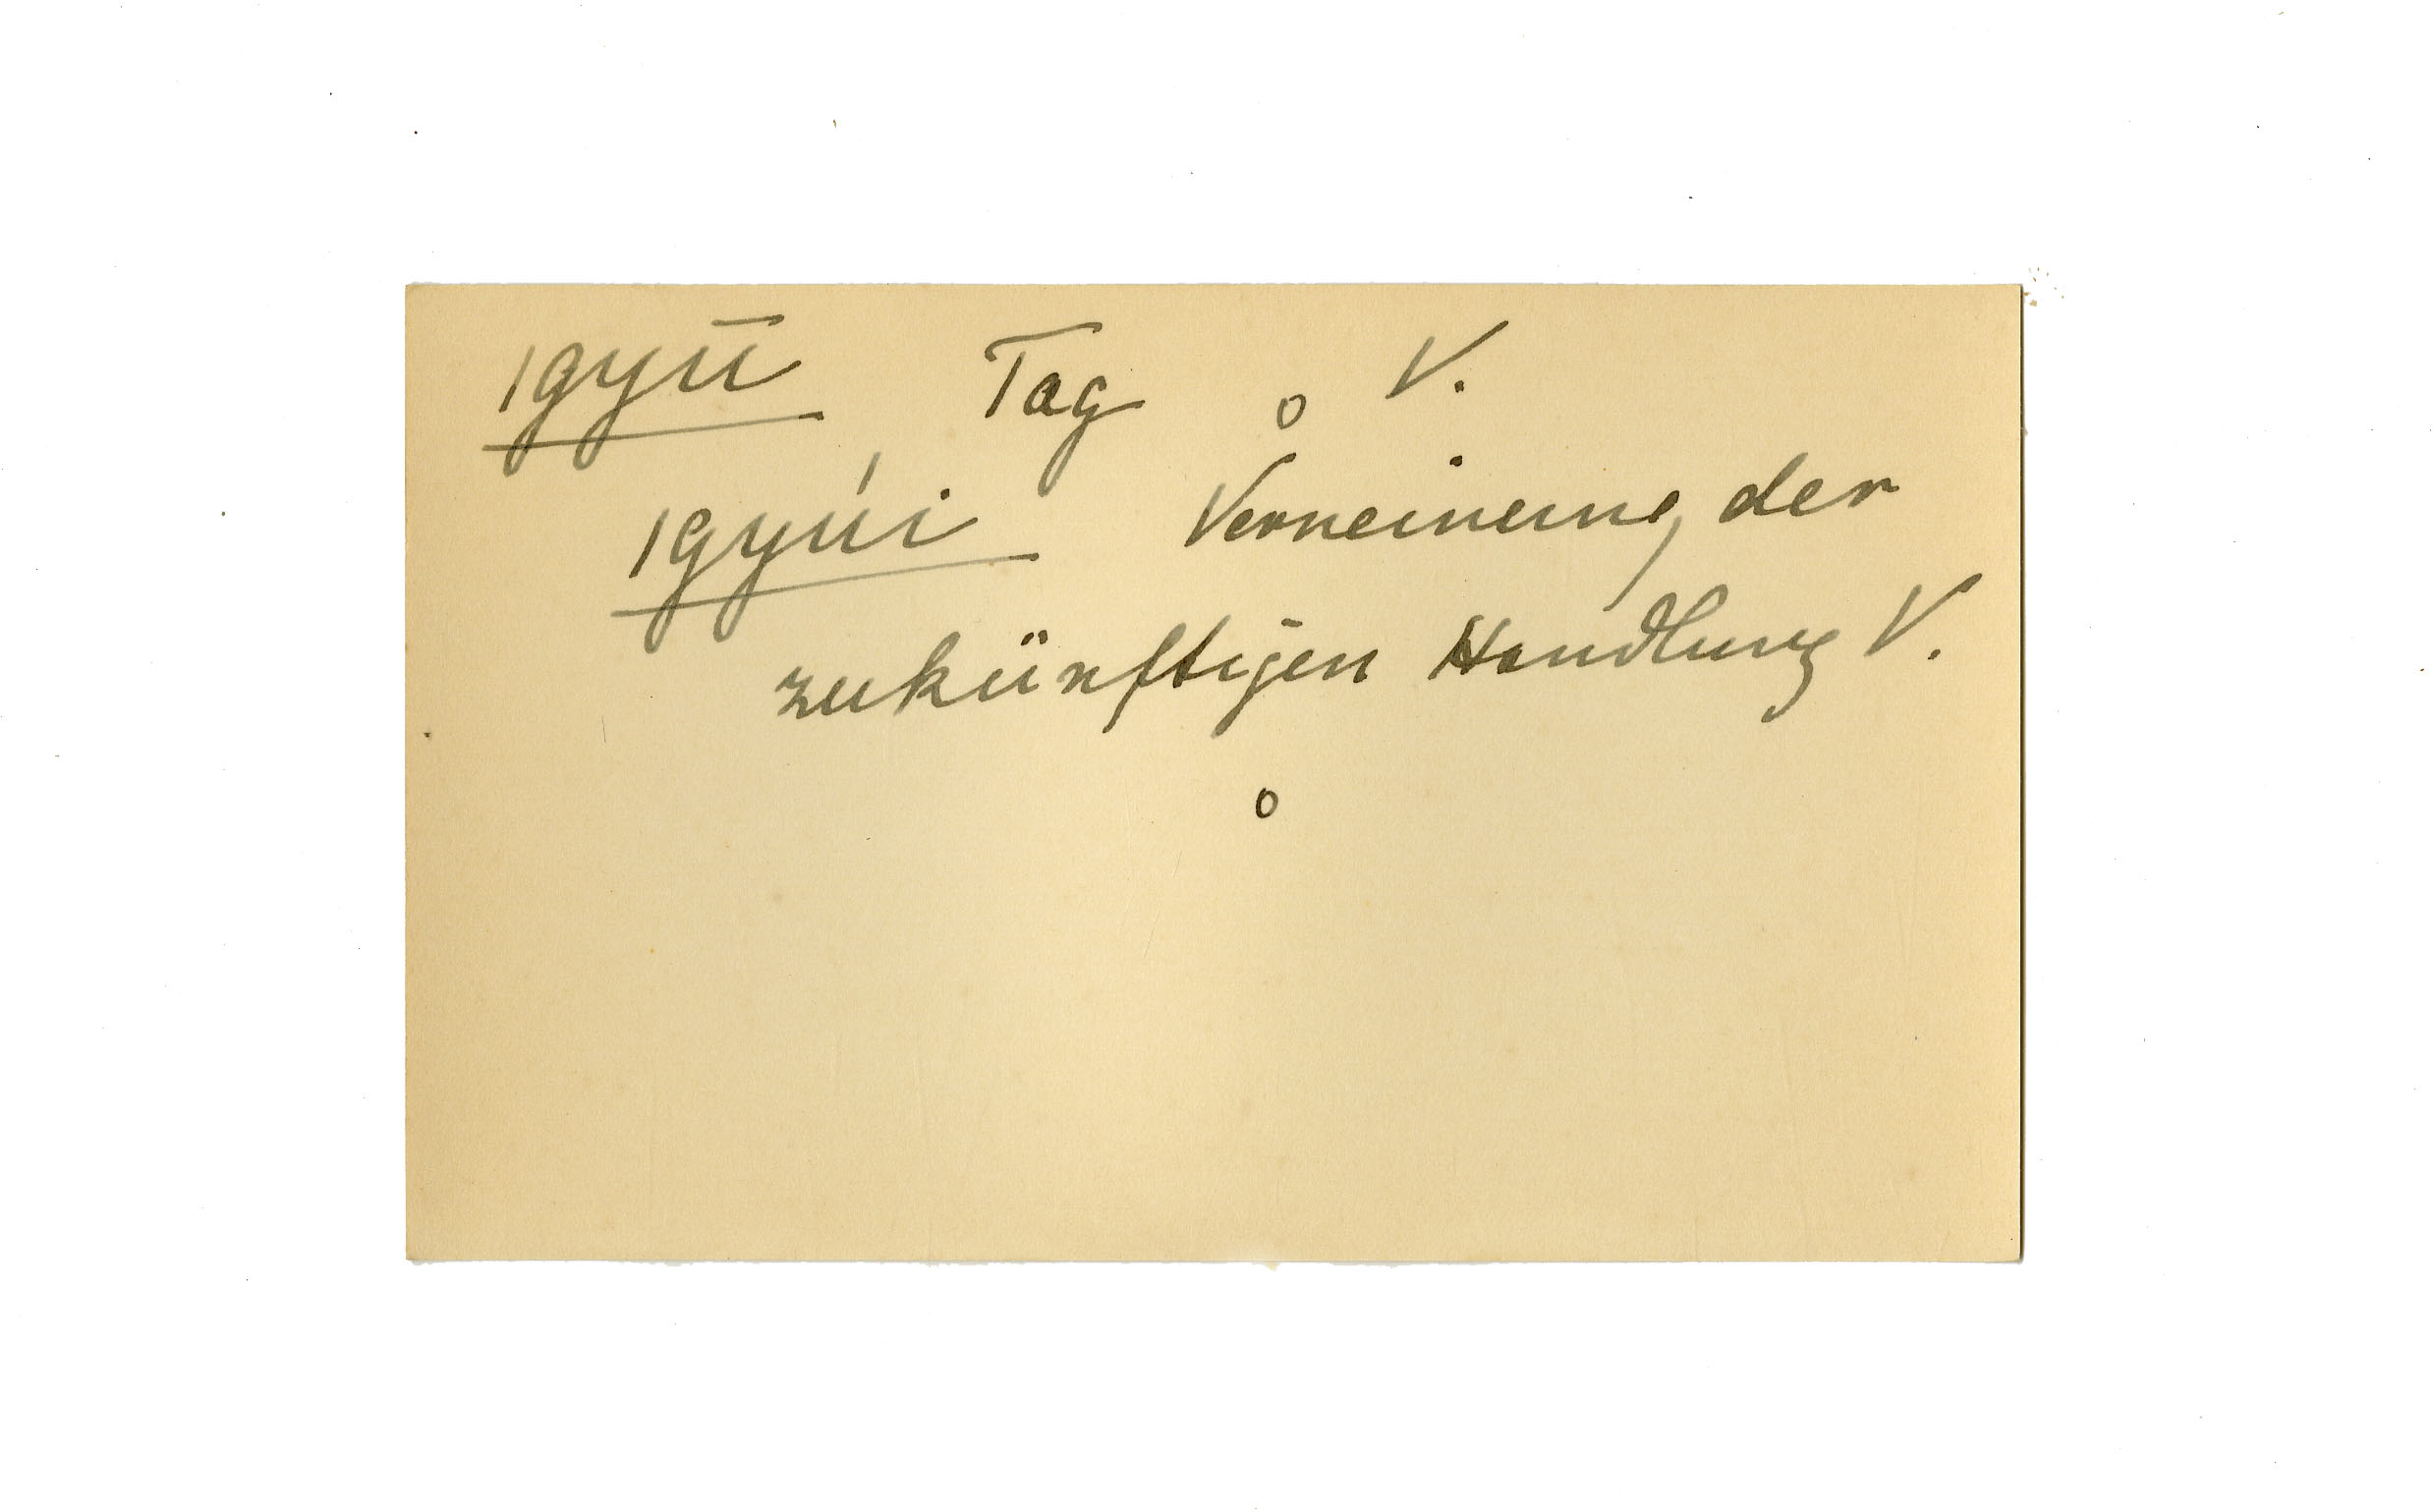 ıgyū Tag o V.
ıgyúi Verneinung der
zukünftigen Handlung V.
o